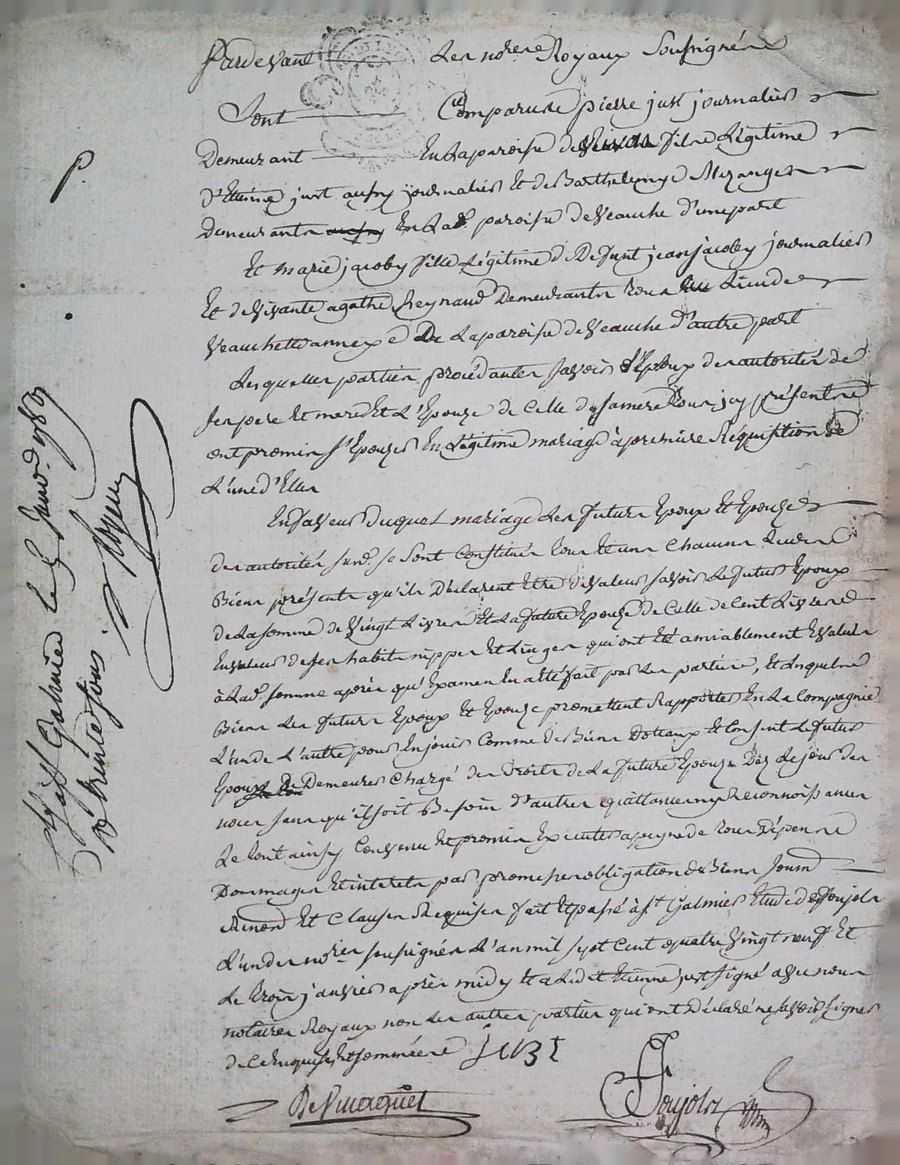 Pardevant Les no.res Royaux Soussignés
Sont Comparus pierre just journalier
Demeurant En La paroisse de fils Légitime
d'Etienne just aussy journalier Et de Barthelemye Mezanges
demeurants En Lad. paroisse de Veauche d'une part
Et marie jacoby fille Légitime de Defunt jean jacoby journalier
Et de vivante agathe Reynaud Demeurantes tous Lieu de
Veauchette annexe De La paroisse de Veauche d'autre part
Lesquelles parties procédantes savoir L'Epoux des autorités de
ses pere Et mere Et L'Epouze de Celle de sa mere tous icy présents
ont promis s'Epouzer En Légitime mariage à premiere Réquisition de
L'une d'Elles
En faveur Duquel mariage Les futurs Epoux Et Epouze
des autorités susd. se sont Constitué tous Et uns Chacuns Leurs
Biens présents qu'ils Déclarent Etre de valeur savoir Le futur Epoux
de La somme de Vingt Livres Et La future Epouze de Celle de Cent Livres
En valeur de ses habits nippes Et Linges qui ont Eté amiablement Evalués
à Lad. somme après qu'Examen En a Eté fait par Les parties, Et Lesquels
Biens Les futurs Epoux Et Epouze promettent Rapporter En La Compagnie
L'un de L'autre pour En jouir Comme de Biens Dottaux Et Consent Le futur
Epoux Demeurer Chargé des Droits de La future Epouze Dez Le jour des
noces sans qu'il soit Besoin d'autres quittances ny Reconnoissances
Le tout ainsy Convenu Et promis Exécuter a peyne de tous Dépens
Dommages Et interets par promesse obligation de Biens Soum.
Renon. Et Clauses Requises fait Et passé à St. Galmier Etude de Soujols
L'un des no.res soussignés L'an mil sept Cent quatre Vingt neuf Et
Le trois janvier après midy Et a Ledit Etienne just signé avec nous
notaires Royaux non Les autres parties qui ont Déclaré ne savoir signer
de Ce Enquises Et sommées
just
Soujols
P.
St Galmier Le janv. 1789
trente sous